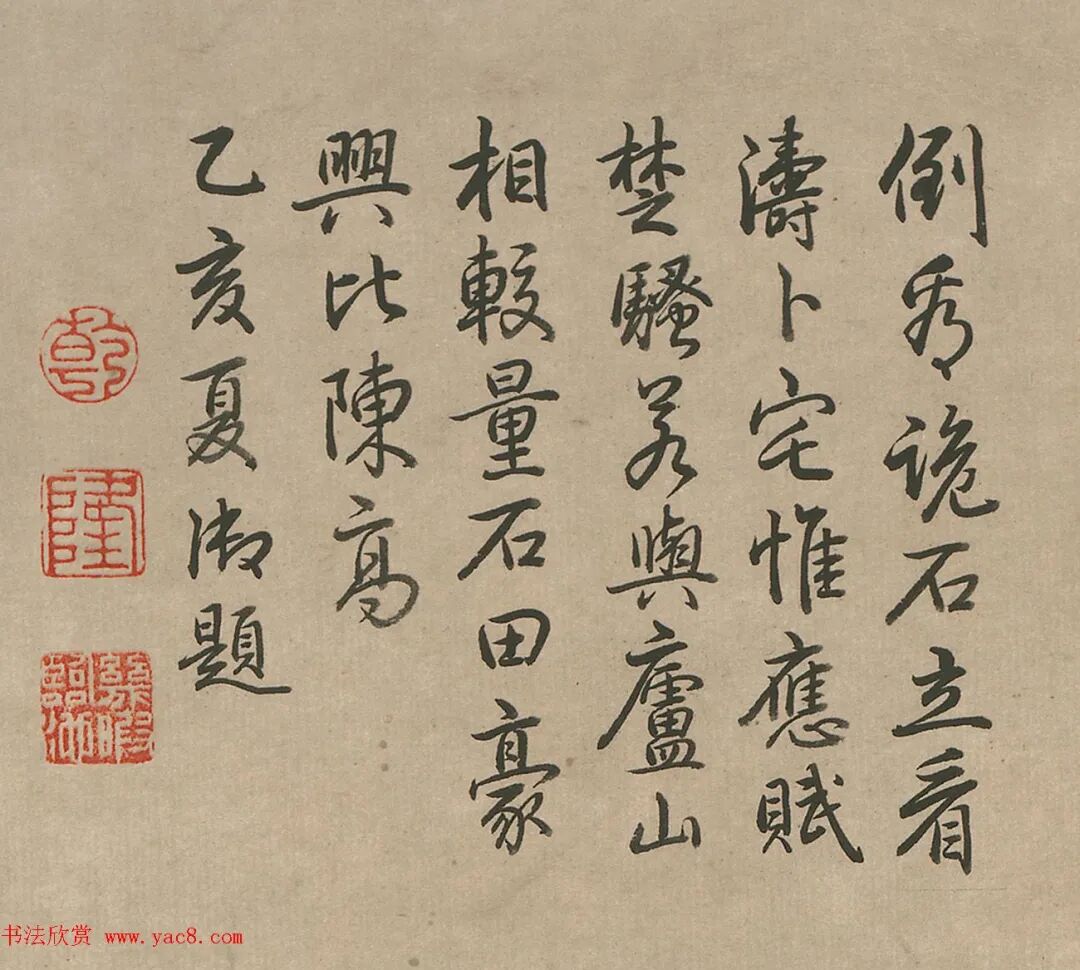 倒秀詭石立看
濤卜宅惟應賦
楚騷若與廬山
相較量石田豪
興比陳高
乙亥夏御題
乾
隆
书法欣赏 www.yac8.com